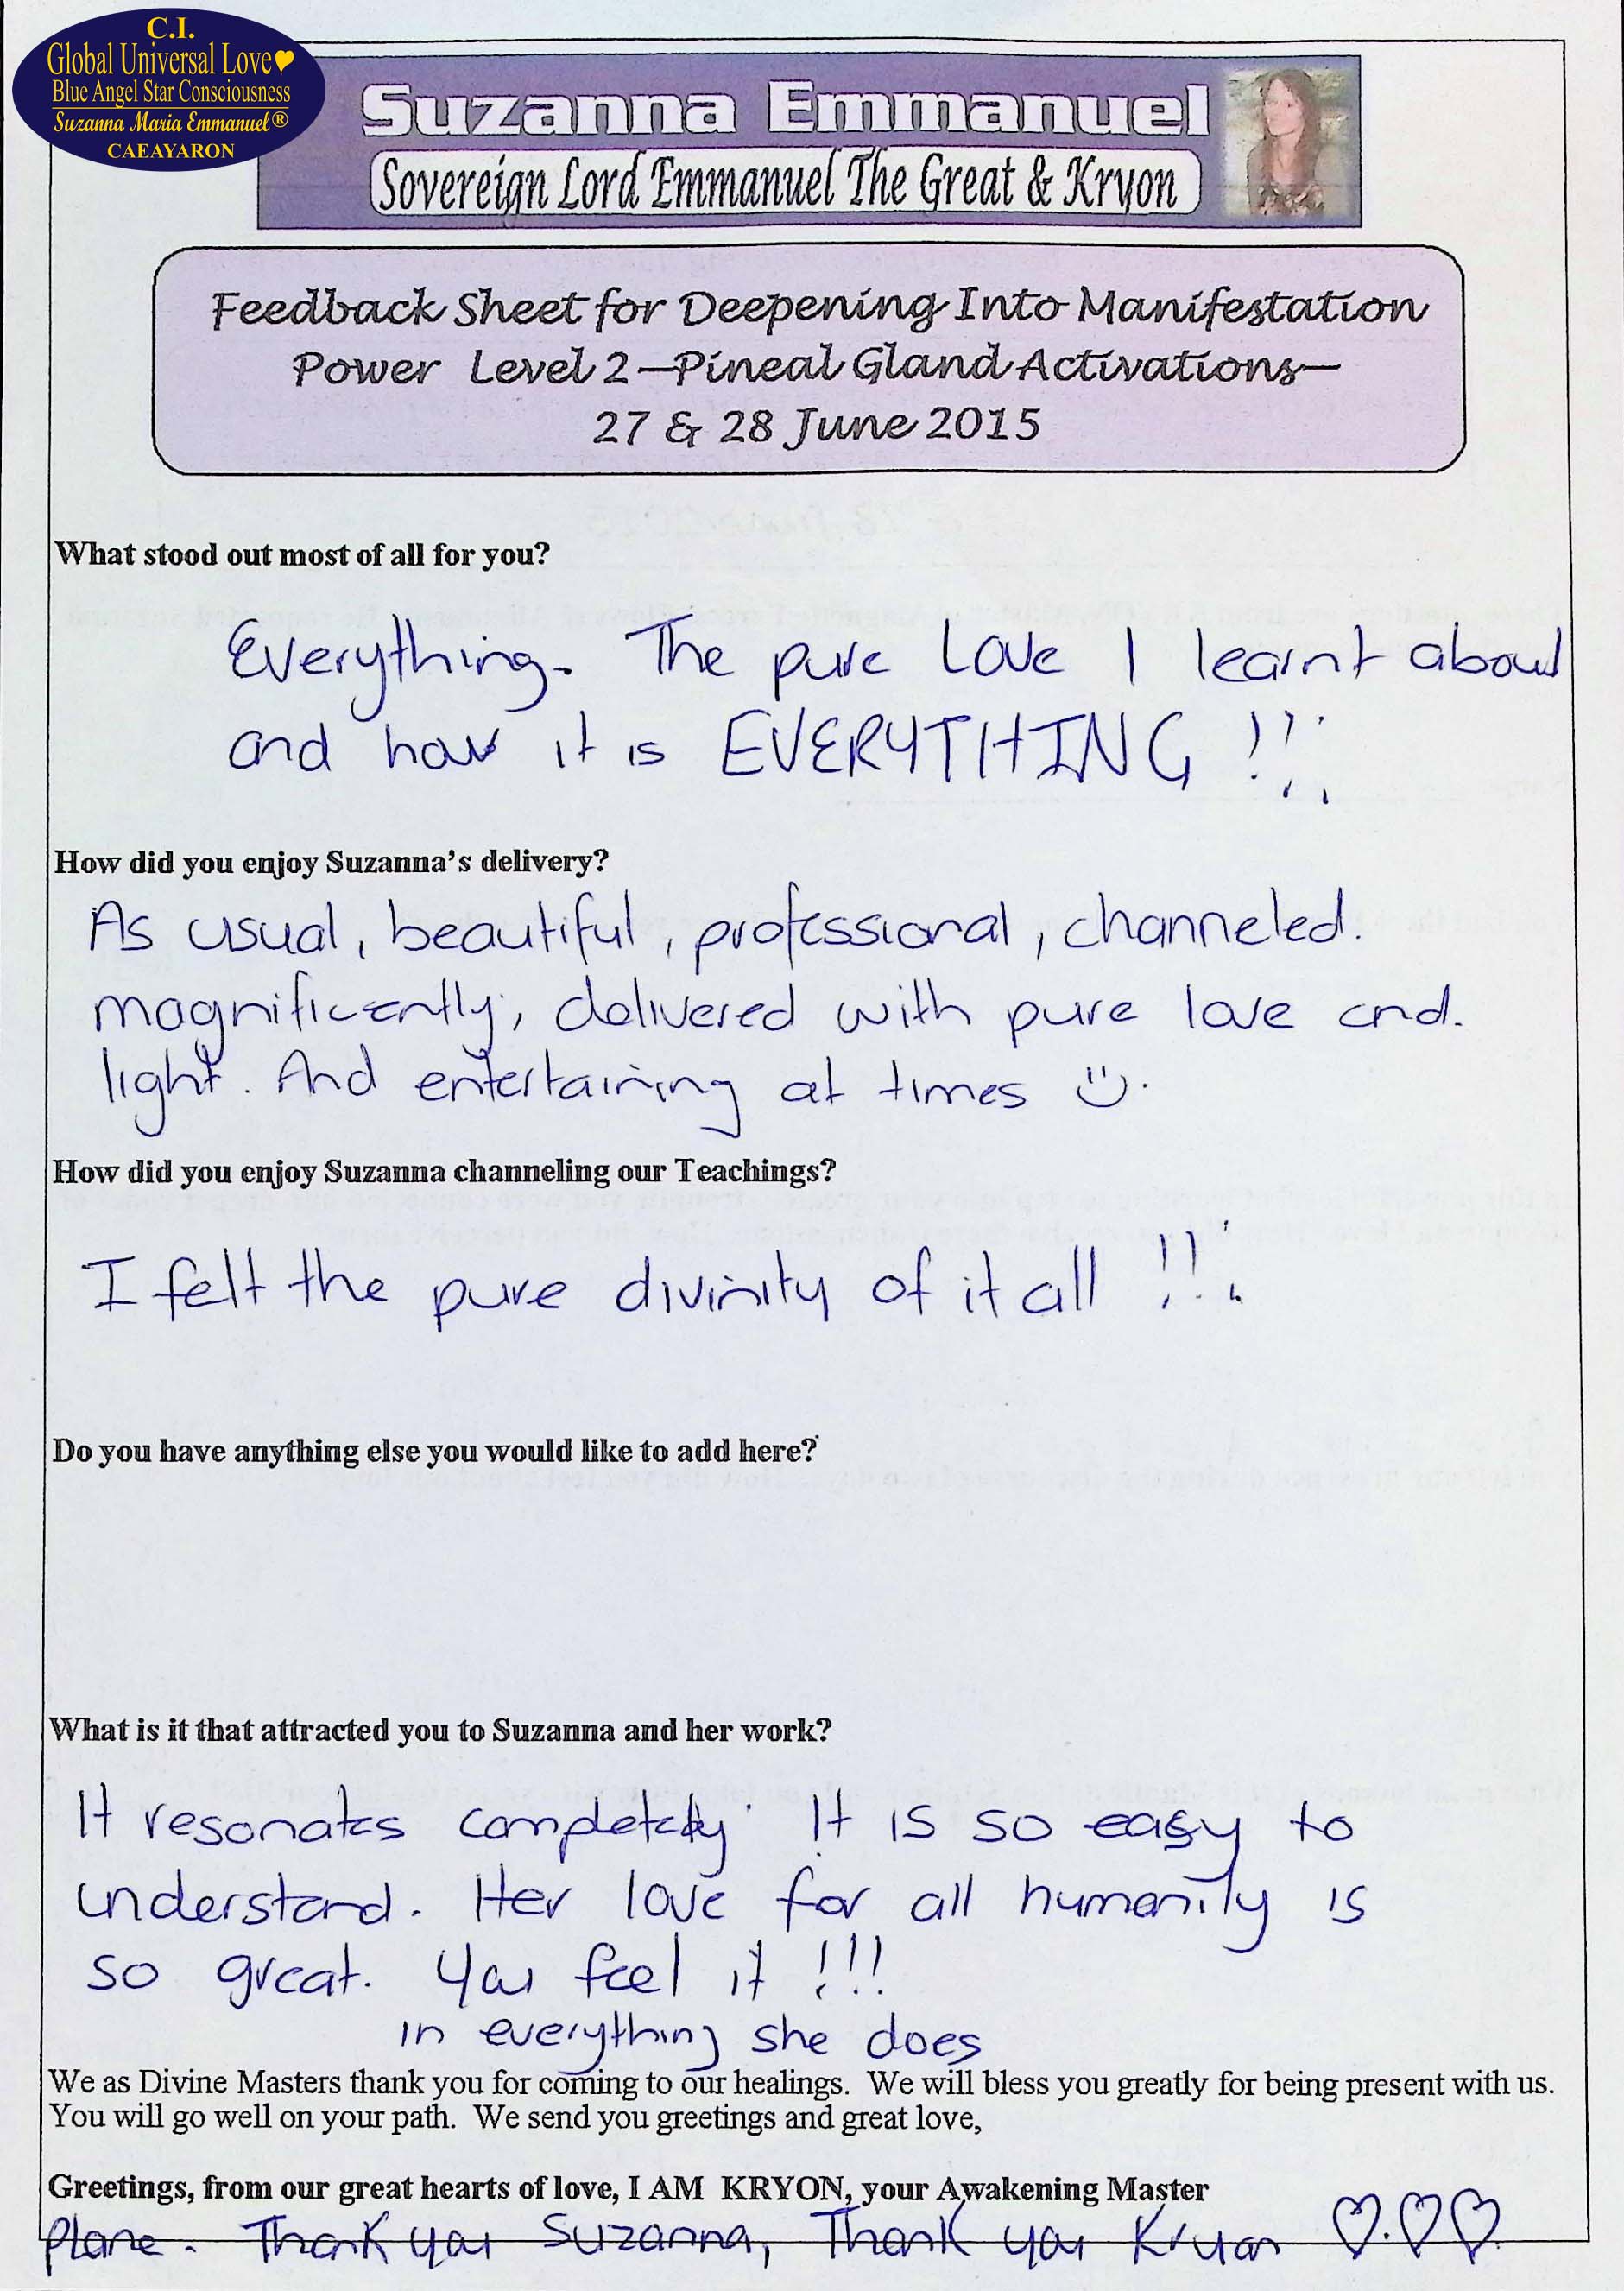 C.I.
Global Universal Love
Blue Angel Star Consciousness
Suzanna Maria Emmanuel®
CAEAYARON
Suzanna Emmanuel
Sovereign Lord Emmanuel The Great & Kryon
Feedback Sheet for Deepening Into Manifestation
Power Level 2—Pineal Gland Activations—
27 & 28 June 2015
What stood out most of all for you?
Everything. The pure Love I learnt about
and how it is EVERYTHING !!!
How did you enjoy Suzanna's delivery?
As usual, beautiful, professional, channeled.
magnificently, delivered with pure love and.
light. And entertaining at times ☺.
How did you enjoy Suzanna channeling our Teachings?
I felt the pure divinity of it all !!!
Do you have anything else you would like to add here?
What is it that attracted you to Suzanna and her work?
It resonates completely. It is so easy to
understand. Her love for all humanity is
so great. You feel it !!!
in everything she does
We as Divine Masters thank you for coming to our healings. We will bless you greatly for being present with us.
You will go well on your path. We send you greetings and great love,
Greetings, from our great hearts of love, I AM KRYON, your Awakening Master
Plane. Thank you Suzanna, Thank you Kryon ♡.♡♡